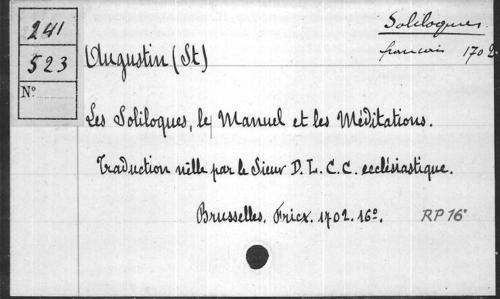 241
523
N°
Soliloques.
francais 1702.
Augustin (St)
Les Soliloques, le Manuel et les Méditations.
Traduction nille par le Sieur D. L. C. C. ecclésiastique.
Brusselles. Fricx. 1702. 16°.
RP 16°